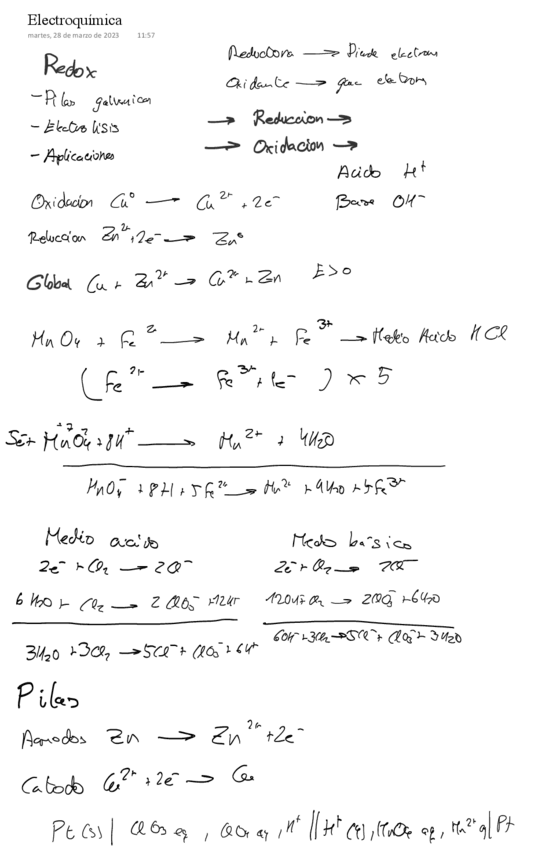 Electroquímica
martes, 28 de marzo de 2023 11:57
Redox
- Pilas galvanica
- Electrolisis
- Aplicaciones
Reductora → Pierde electrons
Oxidante → gana electrons
→ Reduccion →
→ Oxidacion →
Acido H⁺
Base OH⁻
Oxidacion Cu⁰ → Cu²⁺ + 2e⁻
Reduccion Zn²⁺ + 2e⁻ → Zn⁰
Global Cu + Zn²⁺ → Cu²⁺ + Zn E>0
MnO₄ + Fe²⁻ → Mn²⁺ + Fe³⁺ → Medio Acido HCl
(Fe²⁺ → Fe³⁺ + 1e⁻) x 5
5e⁻ + MnO₄⁻ + 8H⁺ → Mn²⁺ + 4H₂O
MnO₄⁻ + 8H + 5Fe²⁺ → Mn²⁺ + 4H₂O + 5Fe³⁺
Medio acido
2e⁻ + Cl₂ → 2Cl⁻
6H₂O + Cl₂ → 2ClO₃⁻ + 12H⁺
3H₂O + 3Cl₂ → 5Cl⁻ + ClO₃⁻ + 6H⁺
Medo básico
2e⁻ + Cl₂ → 2Cl⁻
12OH + Cl₂ → 2ClO₃⁻ + 6H₂O
6OH⁻ + 3Cl₂ → 5Cl⁻ + ClO₃⁻ + 3H₂O
Pilas
Anodos Zn → Zn²⁺ + 2e⁻
Catodo Cu²⁺ + 2e⁻ → Cu
Pt(s) | ClO₃ aq, ClO₄ aq, H⁺ || H⁺, MnO₄ aq, Mn²⁺ | Pt